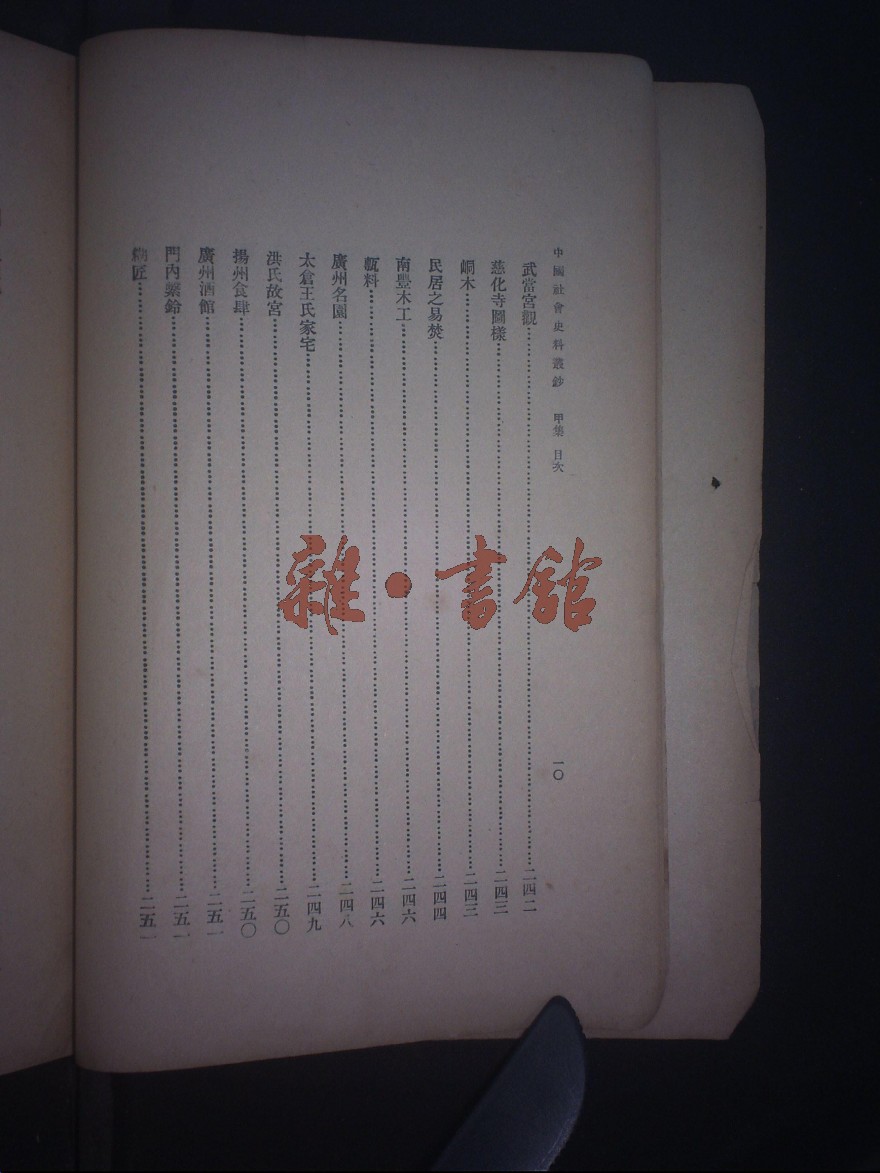 中國社會史料叢鈔 甲集 目次 一〇
武當宮觀…二四二
慈化寺圖樣…二四三
峒木…二四三
民居之易焚…二四四
南豐木工…二四六
甎料…二四六
廣州名園…二四八
太倉王氏家宅…二四九
洪氏故宮…二五〇
揚州食肆…二五〇
廣州酒館…二五一
門內藥鈴…二五一
匠…二五一
雜•書館